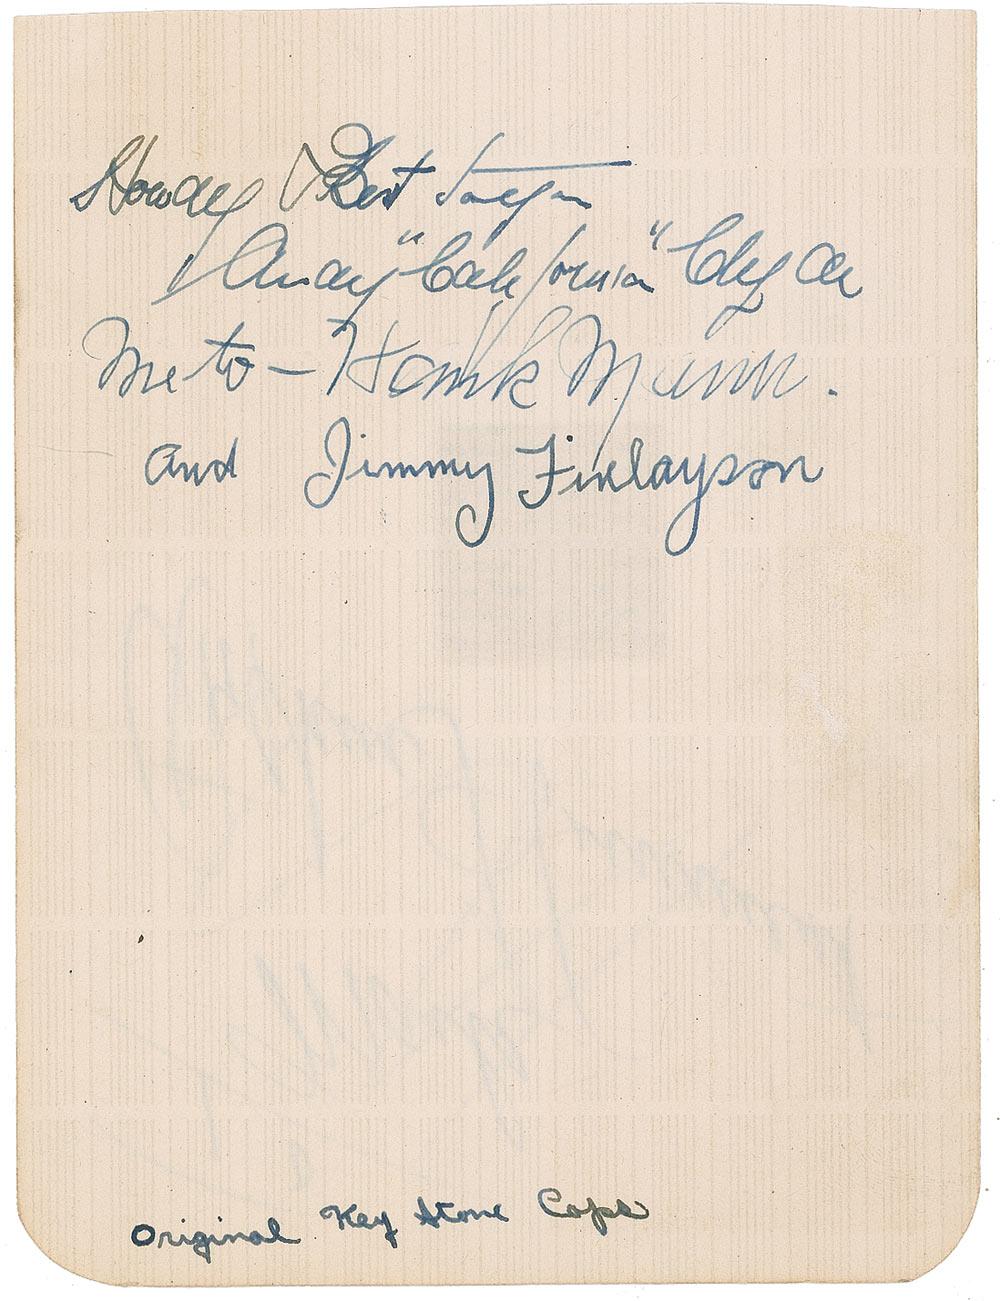 Howdy & Best
Andy "California" Clyde
Me to - Hank Mann.
and Jimmy Finlayson
Original Key Stone Cops